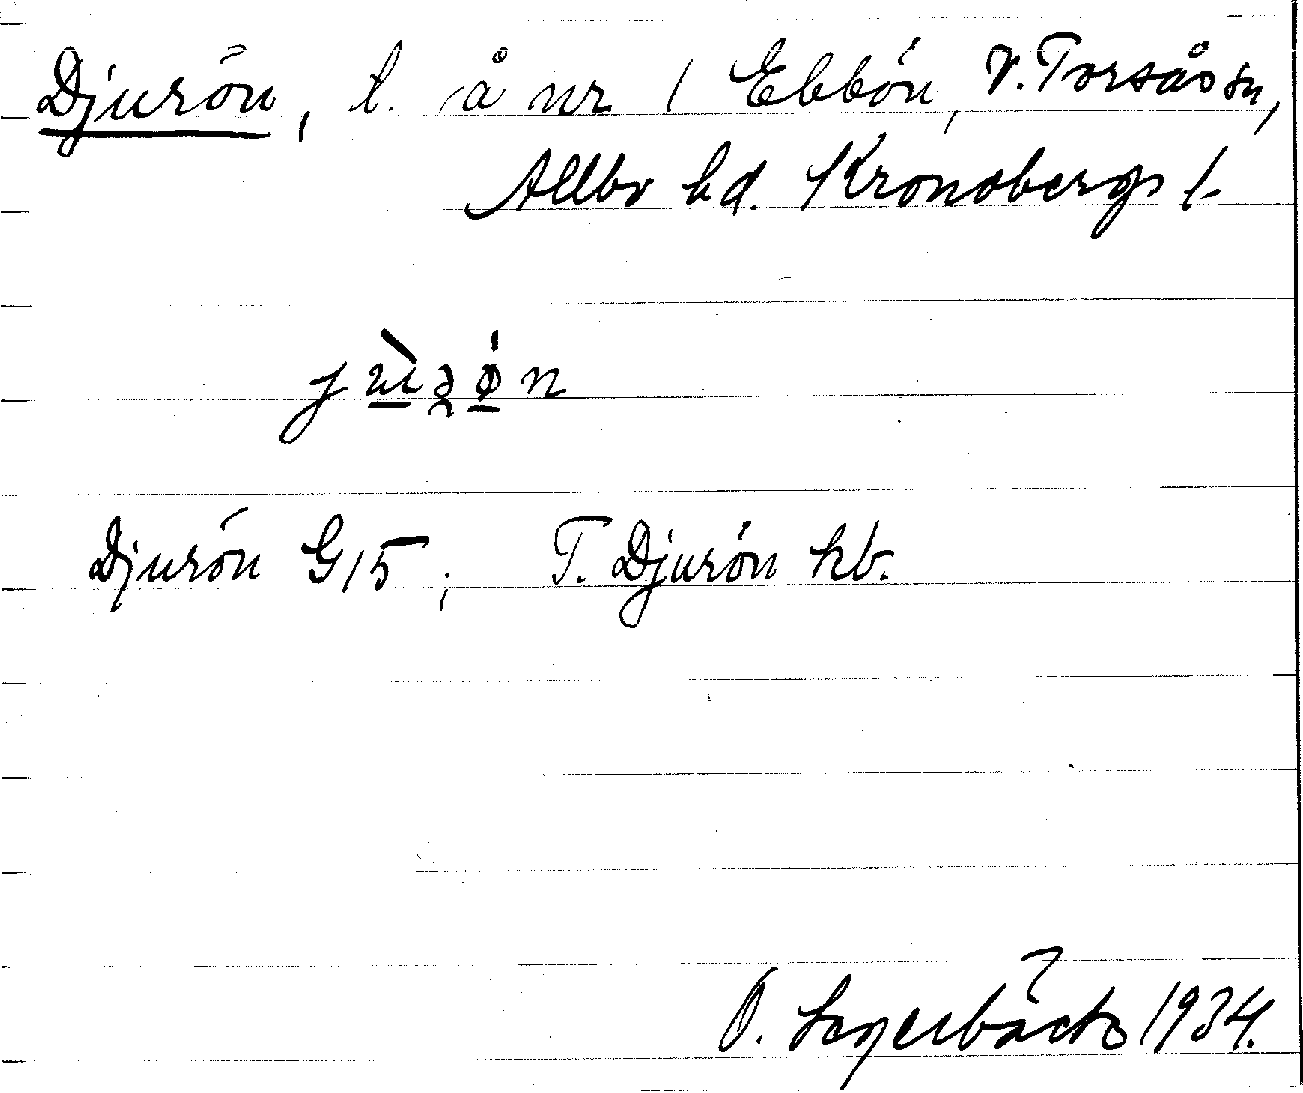 Djurön, l. å nr 1 Ebbön, V. Torsås sn,
Allbo hd. Kronobergs l.
Djurön G15; T. Djurön hb.
O. Lagerbäck 1934.